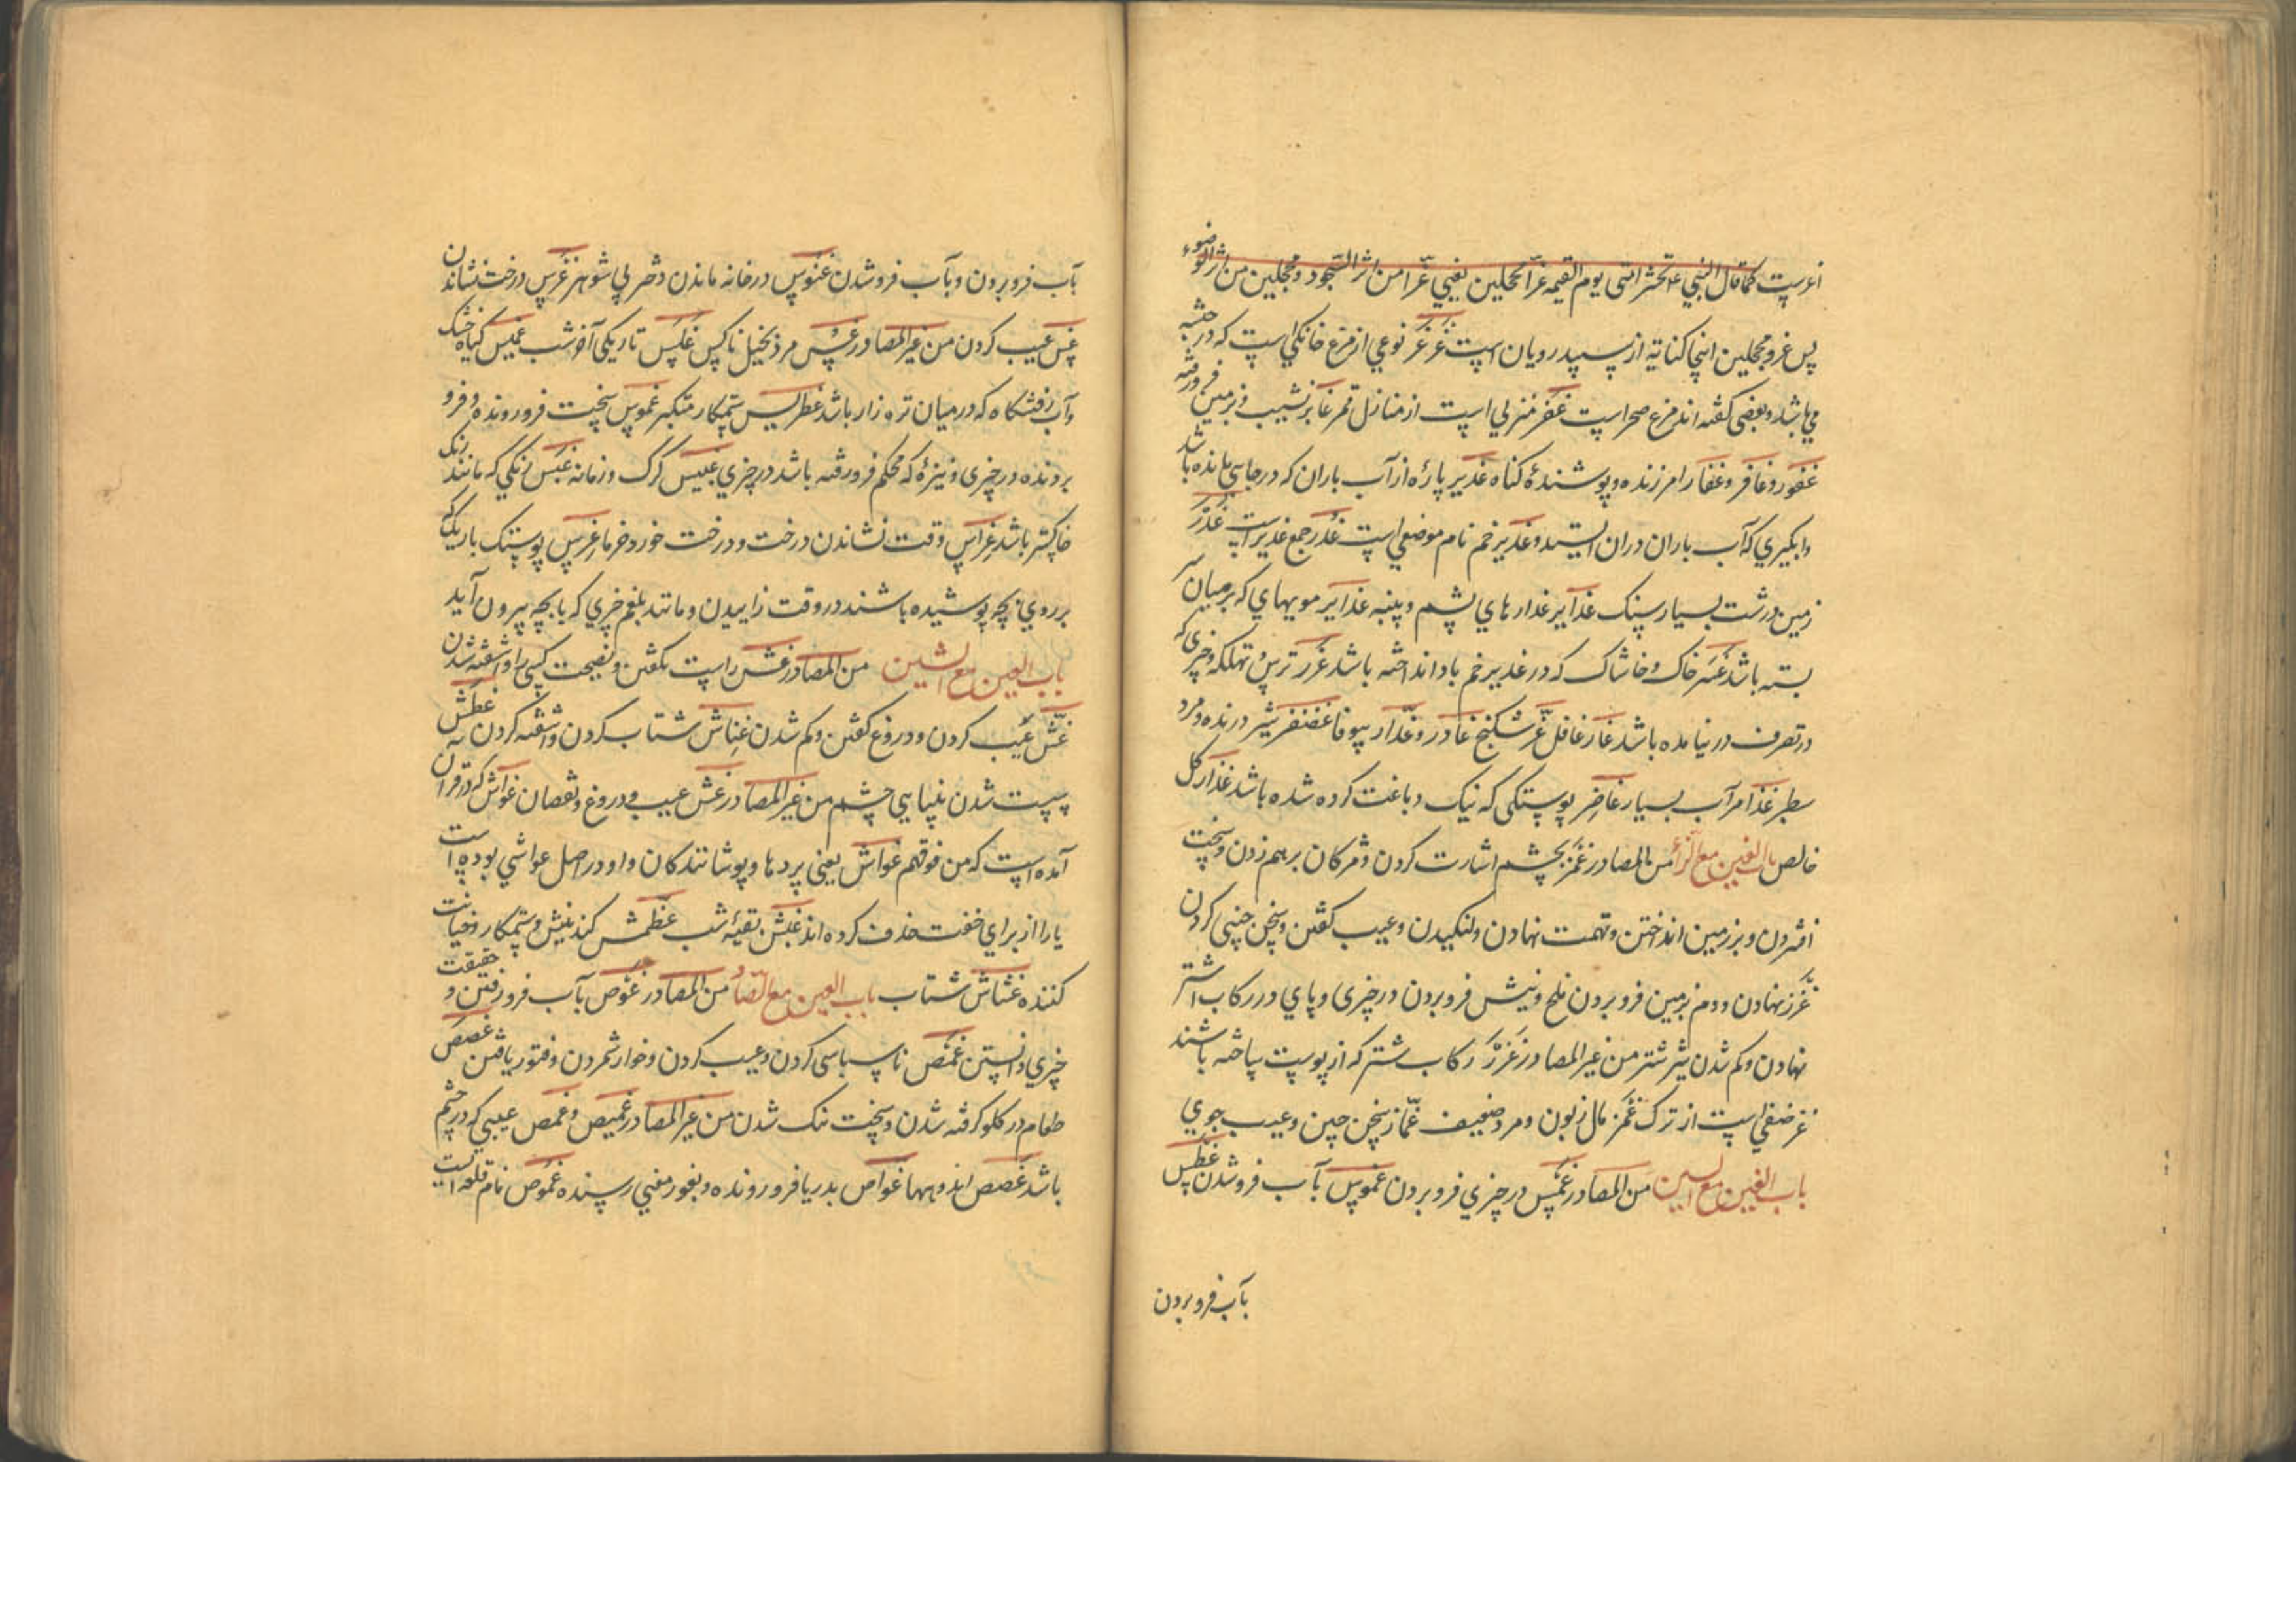 اغرست کما قال النبی ع تحشر امتی یوم القیمه غرا محجلین یعنی غرا من اثر السجود و محجلین من اثر الوضوء
پس غر و محجلین اینجا کنایة از سپید رویان است غرغر نوعی از مرغ خانگی است که در حبشه
می باشد و بعضی گفته اند مرغ صحراست غفر منزلی است از منازل قمر غابر نشیب و زمین فرو رفته
غفور و غافر و غفار آمرزنده و پوشندهٔ گناه غدیر پارهٔ از آب باران که در جایی مانده باشد
و آبگیری که آب باران دران ایستد و غدیر خم نام موضعی است غدر جمع غدیر است غدر
زمین درشت بسیار سنگ غدایر غدارهای پشم و پنبه غدایر مویهای که بر میان سر
بسته باشد خاک و خاشاک که در غدیر خم باد انداخته باشد غرر ترس و تهلکه و چیزی که
در تصرف در نیامده باشد غار غافل غر شکنج غادر و غدار بیوفا غضنفر شیر درنده و مرد
سطبر غذامر آب بسیار غاضر پوستکی که نیک دباغت کرده شده باشد غذار گل
خالص باب الغین مع الزاء من المصادر غمز بچشم اشارت کردن و مژگان برهم زدن و سخت
افشردن و بر زمین انداختن و تهمت نهادن و لنگیدن و عیب گفتن و سخن چینی کردن
غرز نهادن و دم بزمین فرو بردن ملخ و نیش فرو بردن در چیزی و پای در رکاب اشتر
نهادن و کم شدن شیر شتر من غیر المصادر غرز رکاب شتر که از پوست ساخته باشند
غز صنفی است از ترک غمز مال زبون و مرد ضعیف غماز سخن چین و عیب جوی
باب الغین مع السین من المصادر غمس در چیزی فرو بردن غموس بآب فرو شدن غطس
بآب فرو بردن
بآب فرو بردن و بآب فرو شدن غنوس در خانه ماندن دختر بی شوهر غرس درخت نشاندن
غس عیب کردن من غیر المصادر غس مرد بخیل ناکس غلس تاریکی آخر شب غمیس گیاه خشک
و آب رفتنگاه که در میان تره زار باشد غطریس ستمکار متکبر غموس سخت فرو رونده و فرو
برونده در چیزی و نیزهٔ که محکم فرو رفته باشد در چیزی غبیس گرگ و زمانه غبس رنگی که مانند رنگ
خاکستر باشد غراس وقت نشاندن درخت و درخت خورد خرما غرس پوستک باریک که
بر روی بچه پوشیده باشند در وقت زاییدن و مانند بلغم چیزی که با بچه بیرون آید
باب الغین مع الشین من المصادر غش راست نگفتن و نصیحت کسی را و آشفته شدن
غش عیب کردن و دروغ گفتن و کم شدن غشاش شتاب کردن و آشفته کردن غطش
سست شدن بینایی چشم من غیر المصادر غش عیب و دروغ و نقصان غواش که در قرآن
آمده است که من فوقهم غواش یعنی پردها و پوشانندگان و او در اصل غواشی بوده است
یا را از برای خفت حذف کرده اند غبش بقیهٔ شب غطمش کند نیش و ستمکار و خیانت
کننده غشاش شتاب باب الغین مع الصاد من المصادر غوص بآب فرو رفتن و حقیقت
چیزی دانستن غمص ناسپاسی کردن و عیب کردن و خوار شمردن و فتور یافتن غصص
طعام در گلو گرفته شدن و سخت تنگ شدن من غیر المصادر غمیص و غمص عیبی که در چشم
باشد غصص اندوهها غواص بدریا فرو رونده و بغور معنی رسنده غموص نام قلعه است